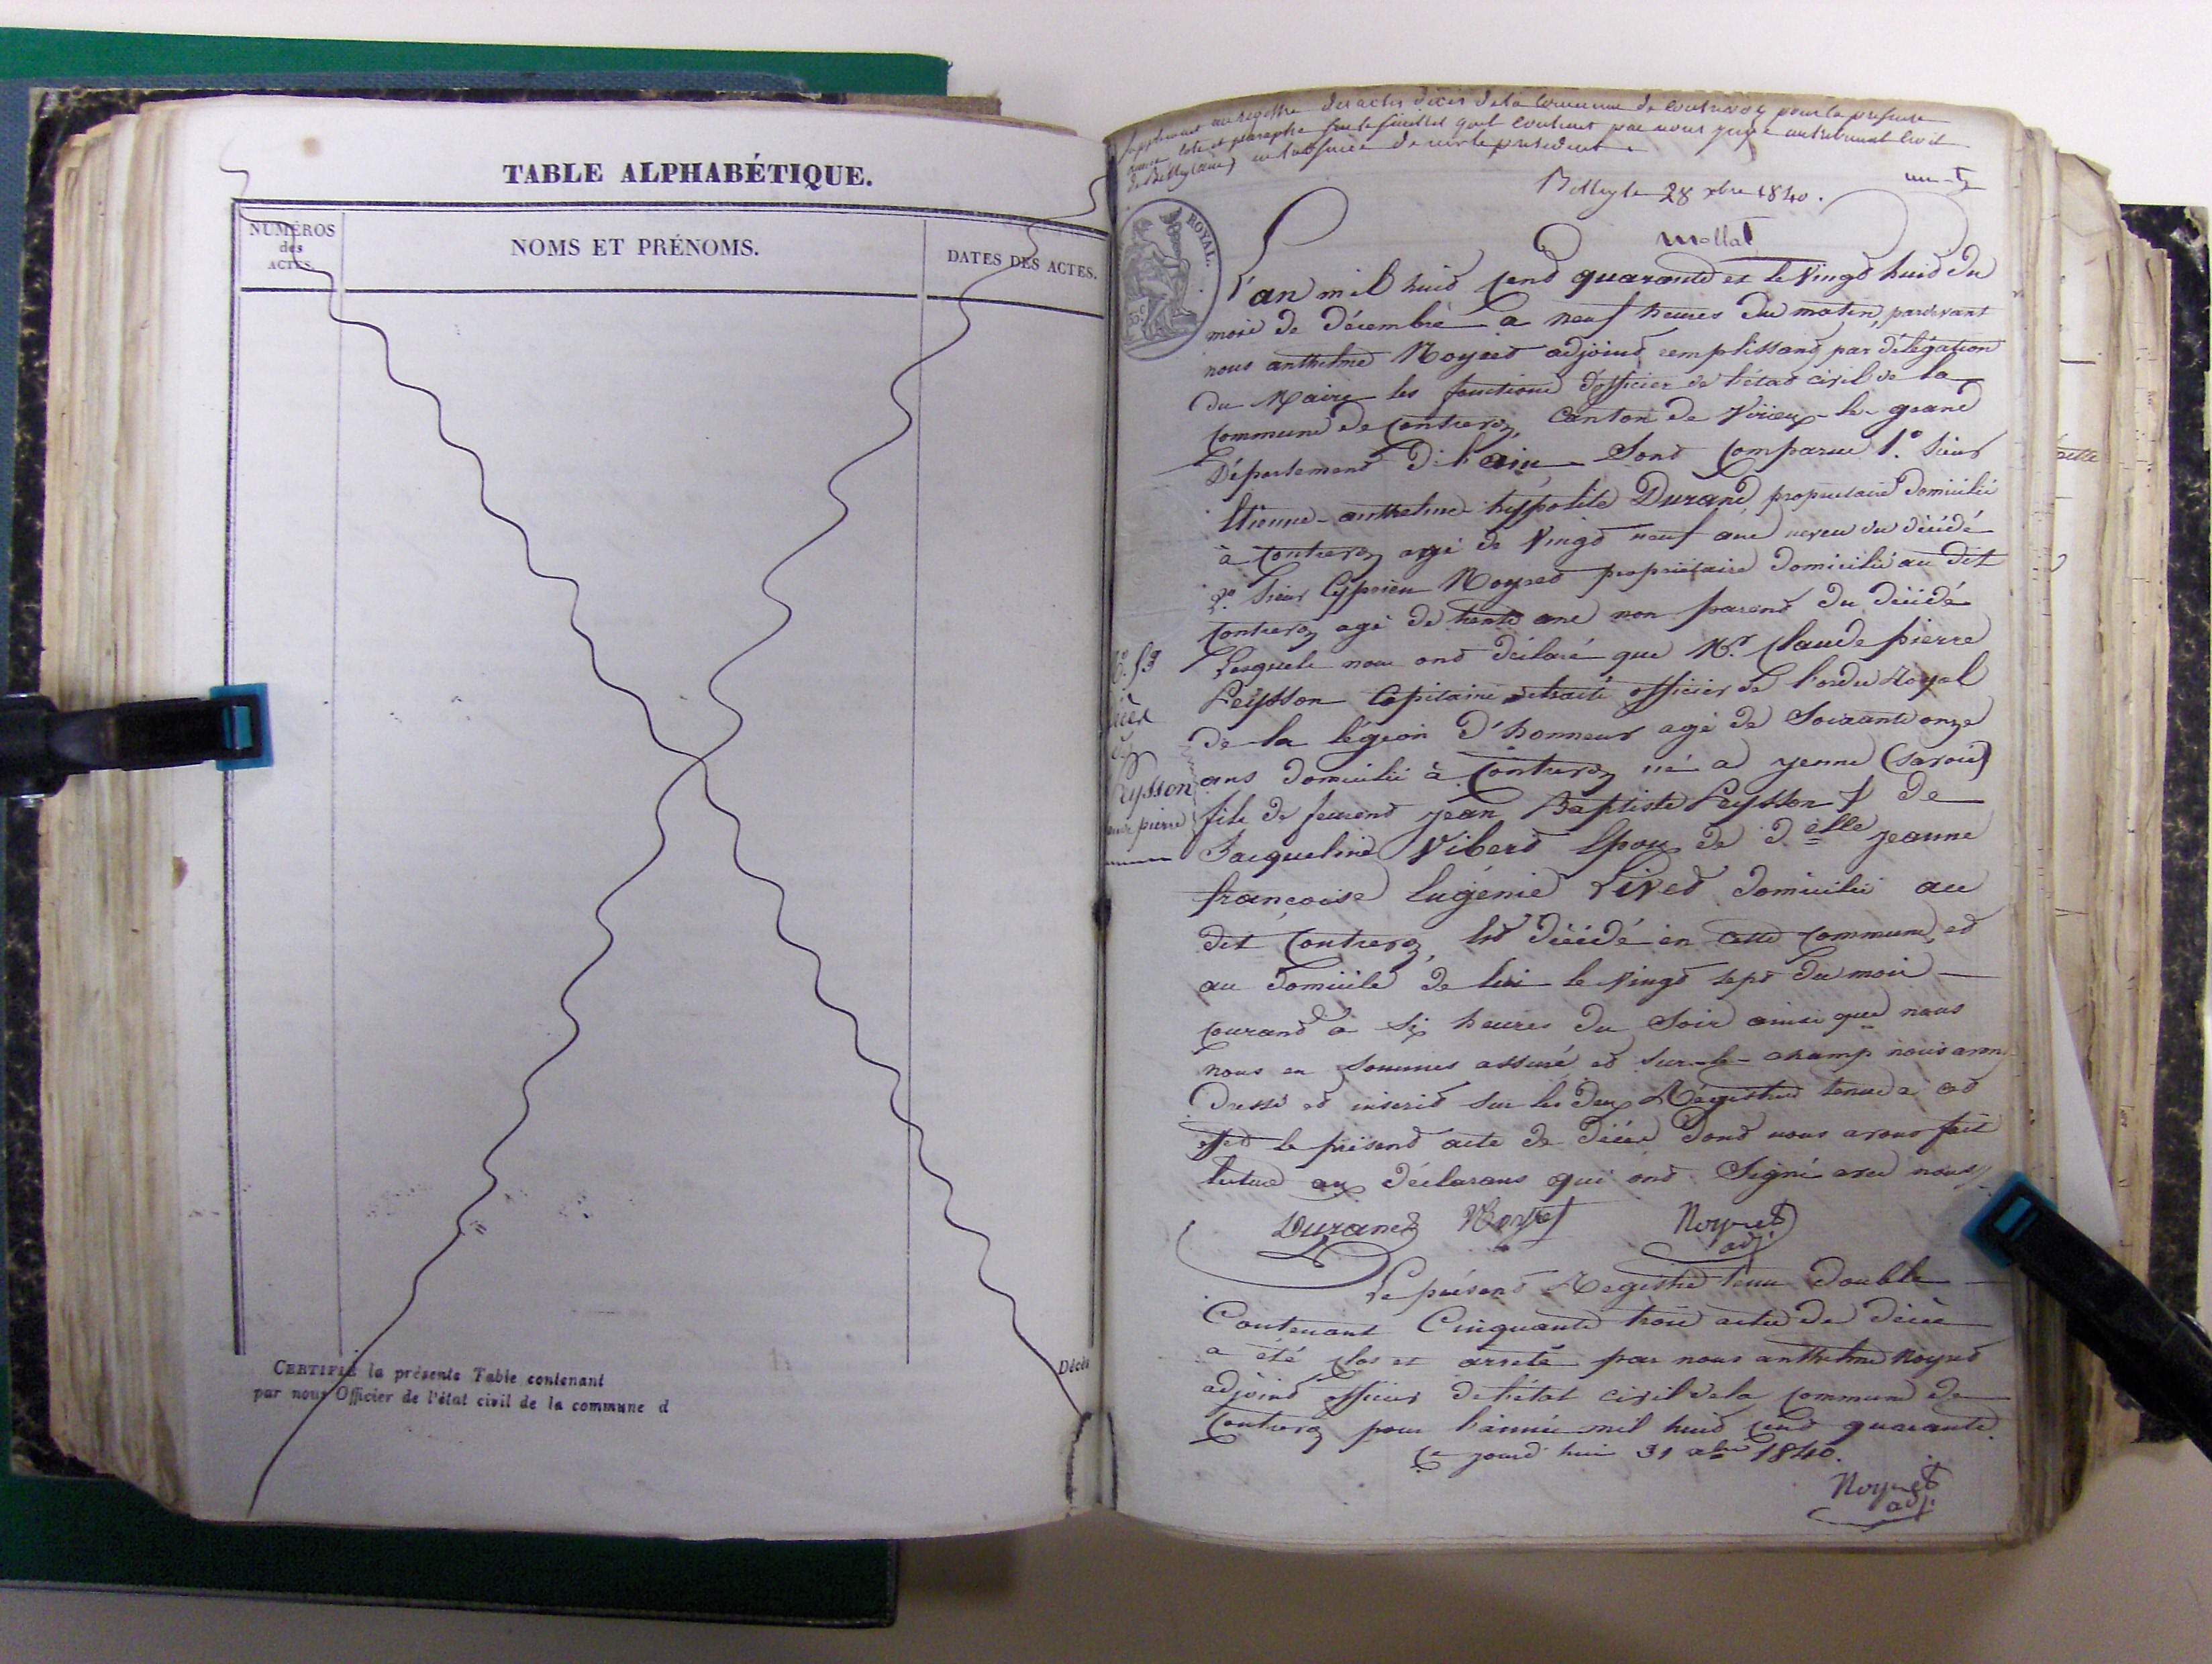 TABLE ALPHABÉTIQUE.
NUMÉROS
des
ACTES.
NOMS ET PRÉNOMS.
DATES DES ACTES.
CERTIFIÉ la présente Table contenant
par nous Officier de l'état civil de la commune d
Décès
Supplement au registre des actes décès de la commune de contrevoz pour la présente
année coté et paraphé par le feuillet quil contient par nous juge au tribunal civil
de Belley (ain) en l'absence de mr le president.
Belley le 28 xbre 1840.
Mollat
ROYAL.
L'an mil huit cent quarante et le Vingt huit du
mois de décembre a neuf heures du matin, pardevant
nous anthelme Noyret adjoint, remplissant par délégation
du Maire les fonctions d'officier de l'état civil de la
commune de Contrevoz, canton de Virieu-le-grand
Département de l'ain Sont comparus 1.° Sieur
Etienne-anthelme-hyppolite Durand propriétaire domicilié
à Contrevoz agé de Vingt neuf ans neveu du décédé
2.° Sieur Cyprien Noyret propriétaire domicilié au dit
Contrevoz agé de trente ans non parent du décédé
Lesquels nous ont déclaré que Mr. Claude pierre
Peysson Capitaine retraité officier de l'ordre Royal
de la légion d'honneur agé de Soixante onze
ans domicilié à Contrevoz né a yenne (savoie)
fils de feu jean Baptiste Peysson & de
Jacqueline Vibert Epoux de d.elle jeanne
françoise Eugénie Livet domicilié au
dit Contrevoz, Est décédé en cette commune, et
au domicile de lui le Vingt sept du mois
courant à Six heures du Soir ainsi que nous
nous en Sommes assuré et sur-le-champ nous avons
Dressé et inscrit sur les deux Régistres tenus a cet
effet le présent acte de décès dont nous avons fait
lecture aux déclarans qui ont Signé avec nous
N.° 53
décès
de
Peysson
pierre
Durand Noyret Noyret
adj.
Le présent Registre tenu double
Contenant Cinquante trois actes de décès
a été clos et arrêté par nous anthelme Noyret
adjoint officier de l'état civil de la commune de
Contrevoz pour l'année mil huit cent quarante.
Ce jourd'hui 31 xbre 1840.
Noyret
adj.